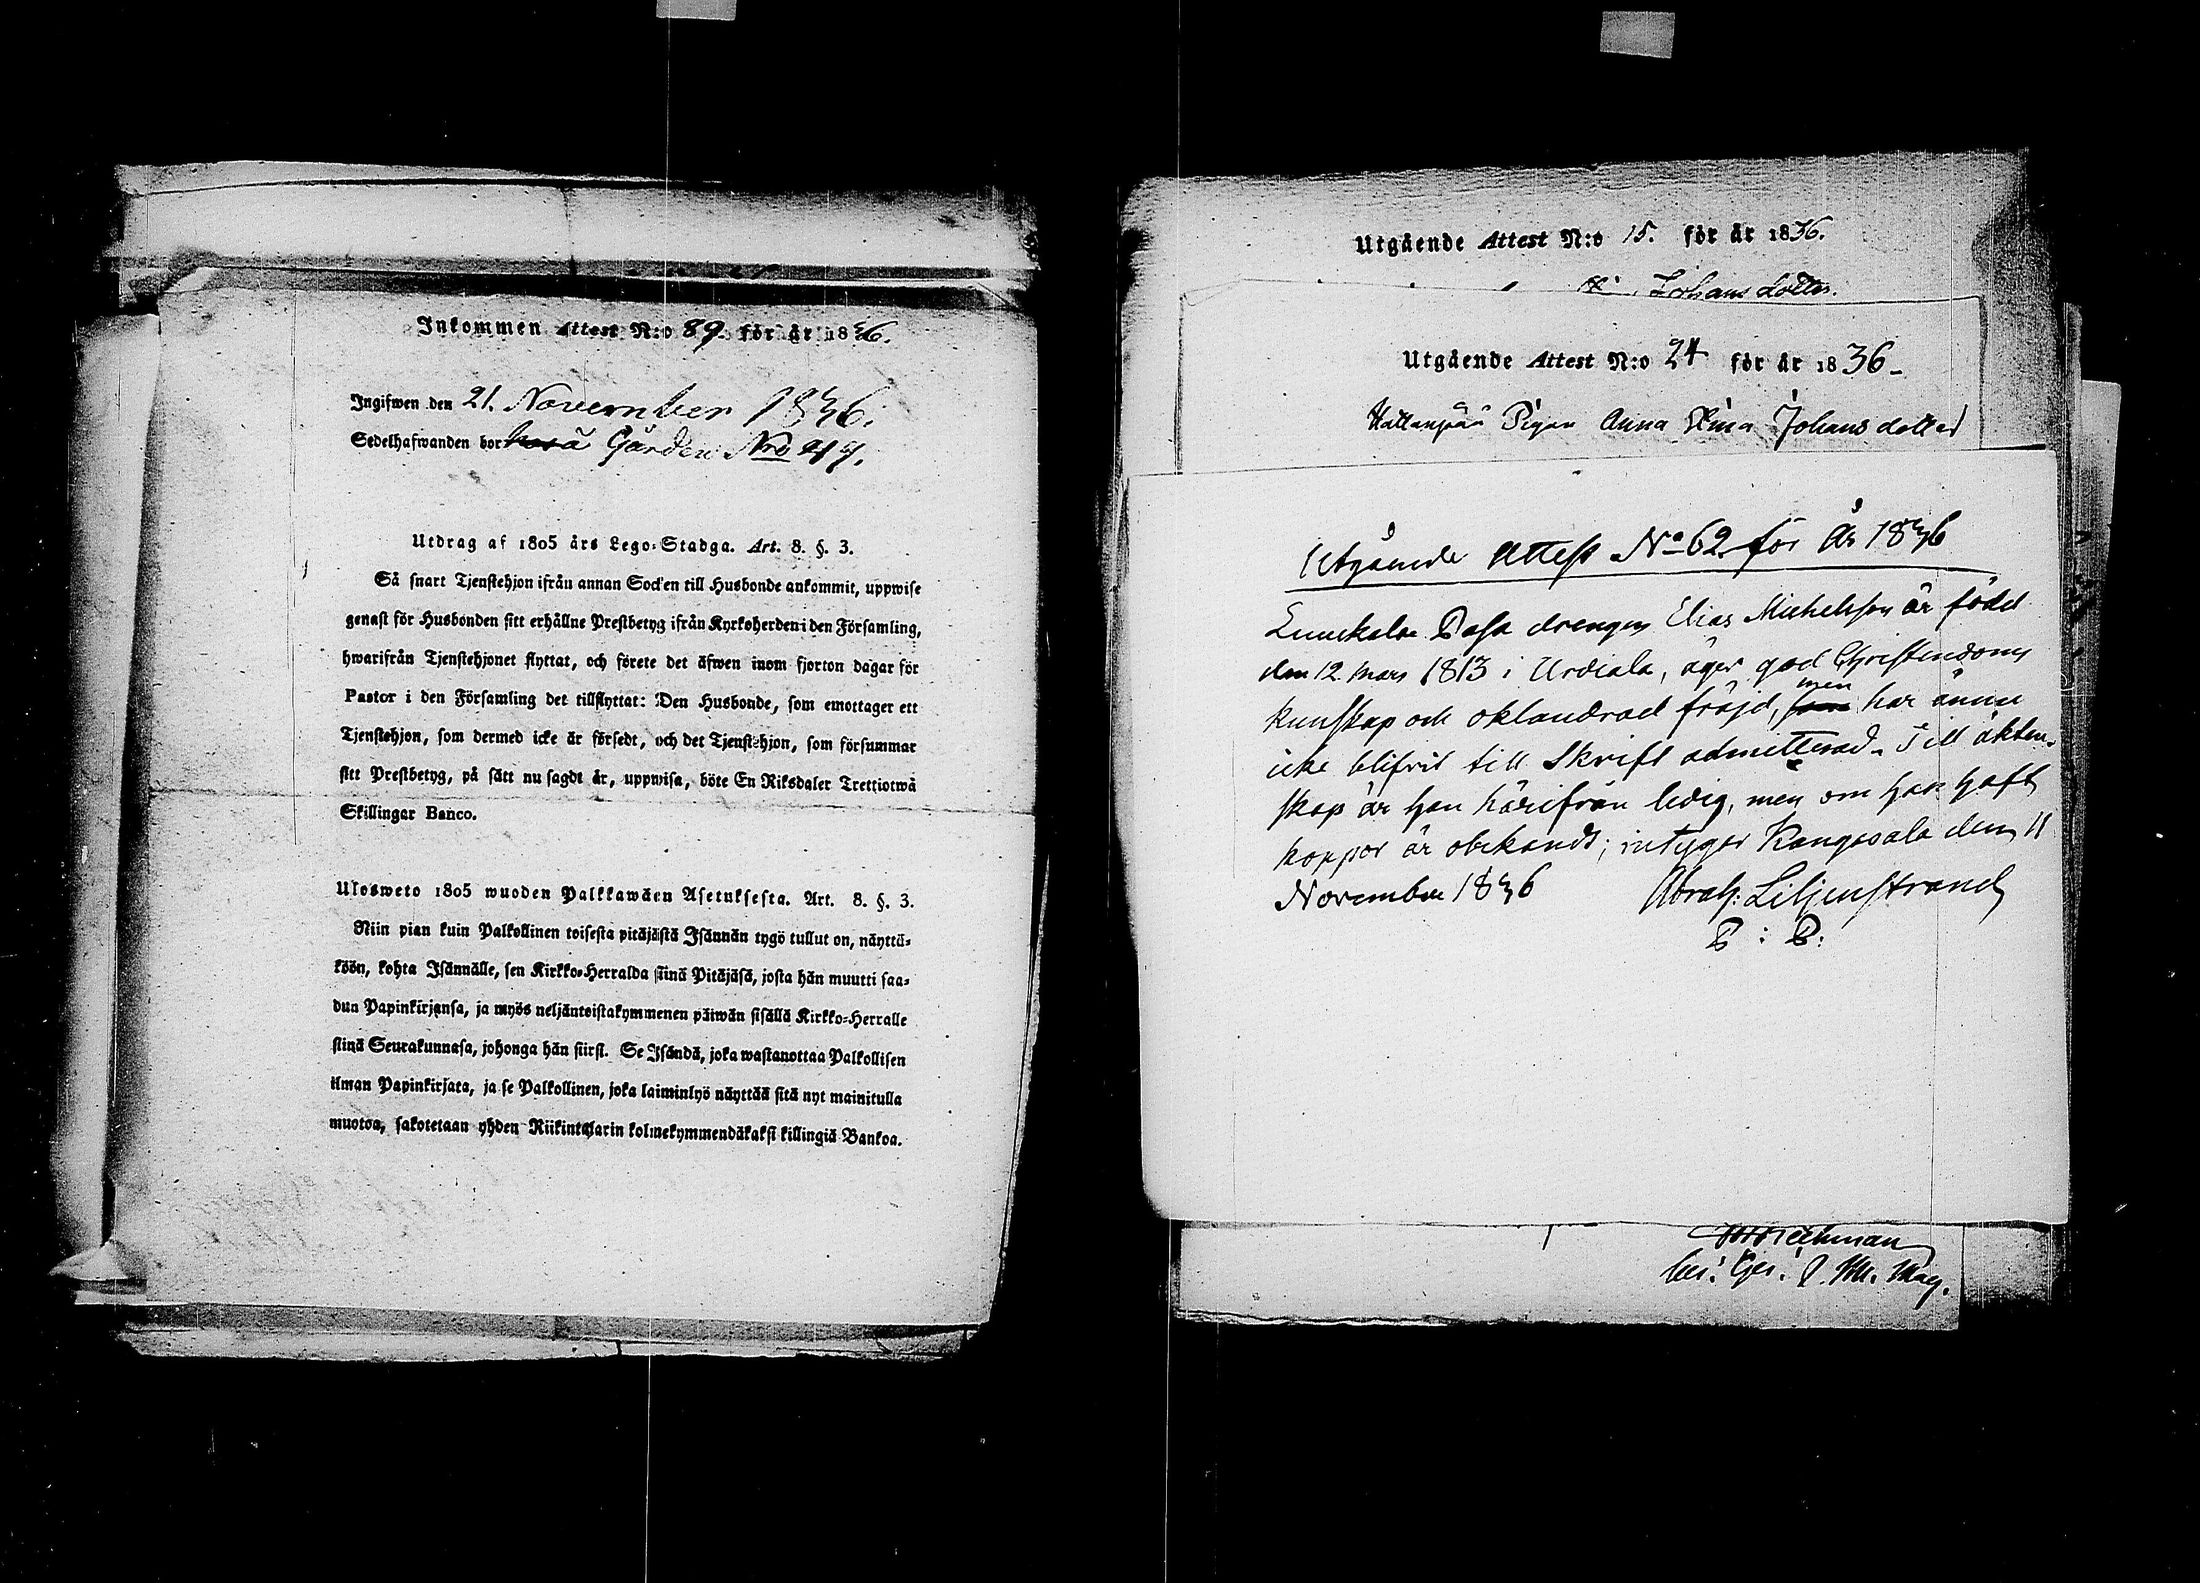 Inkommen Attest N:o 89. för år 1836.
Ingifwen den 21. November 1836.
Sedelhafwanden bor hos å Gården Nro 217.
Utdrag af 1805 års Lego-Stadga. Art. 8. §. 3.
Så snart Tjenstehjon ifrån annan Socken till Husbonde ankommit, uppwise
genast för Husbonden sitt erhållne Prestbetyg ifrån Kyrkoherden i den Församling,
hwarifrån Tjenstehjonet flyttat, och förete det äfwen inom fjorton dagar för
Pastor i den Församling det tillflyttat: Den Husbonde, som emottager ett
Tjenstehjon, som dermed icke är försedt, och det Tjenstehjon, som försummar
sitt Prestbetyg, på sätt nu sagdt är, uppwisa, böte En Riksdaler Trettiotwå
Skillingar Banco.
Ulosweto 1805 wuoden Palkkawäen Asetuksesta. Art. 8. §. 3.
Niin pian kuin Palkollinen toisesta pitäjästä Isännän tygö tullut on, näyttä-
köön, kohta Isännälle, sen Kirkko-Herralda siinä Pitäjäsä, josta hän muutti saa-
dun Papinkirjansa, ja myös neljäntoistakymmenen päiwän sisällä Kirkko-Herralle
siinä Seurakunnasa, johonga hän siirsi. Se Isändä, joka wastanottaa Palkollisen
ilman Papinkirjata, ja se Palkollinen, joka laiminlyö näyttää sitä nyt mainitulla
muotoa, sakotetaan yhden Riikintalarin kolmekymmendäkaksi killingiä Bankoa.
Utgående Attest N:o 15. för år 1836.
Johansdotter.
Utgående Attest N:o 24 för år 1836-
Pigan Anna Stina Johansdotter
Utgående Attest No 62 för År 1836
drengen Elias Michelsson är född
den 12 Mars 1813 i Urdiala, äger god Christendoms
kunskap och oklandrad fräjd, men har ännu
icke blifvit till Skrift admitterad. Till äkten-
skap är han härifrån ledig, men om han haft
koppor är obekandt; intygar Kangasala den 11
November 1836 Abrah: Liljenstrand
P : P: